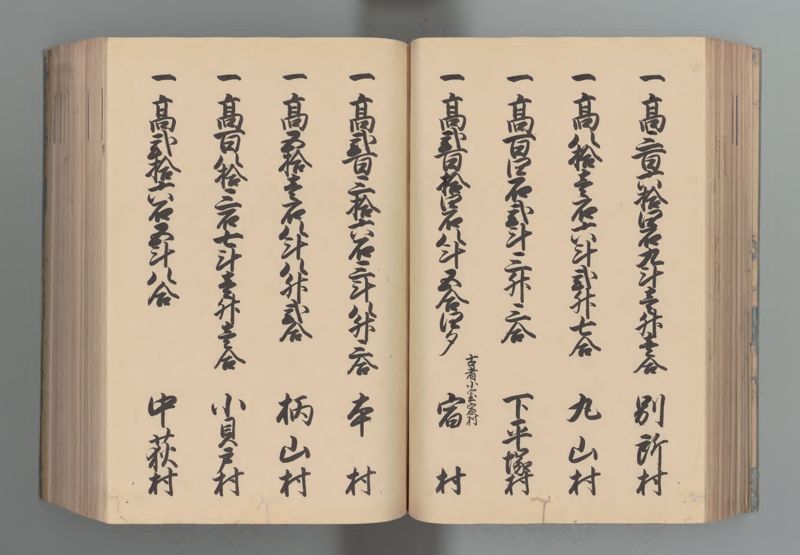 一 高三百六拾四石九斗壱升壱合 別所村
一 高八拾壱石六斗弐升七合 九山村
一 高百四石弐斗三升三合 下平塚村
一 高弐百拾四石八斗五合四夕 古者小室宿村 宿村
一 高弐百三拾六石三斗八升三合 本村
一 高五拾壱石八斗八升弐合 柄山村
一 高百八拾三石七斗壱升壱合 小貝戸村
一 高弐拾六石五斗八合 中荻村